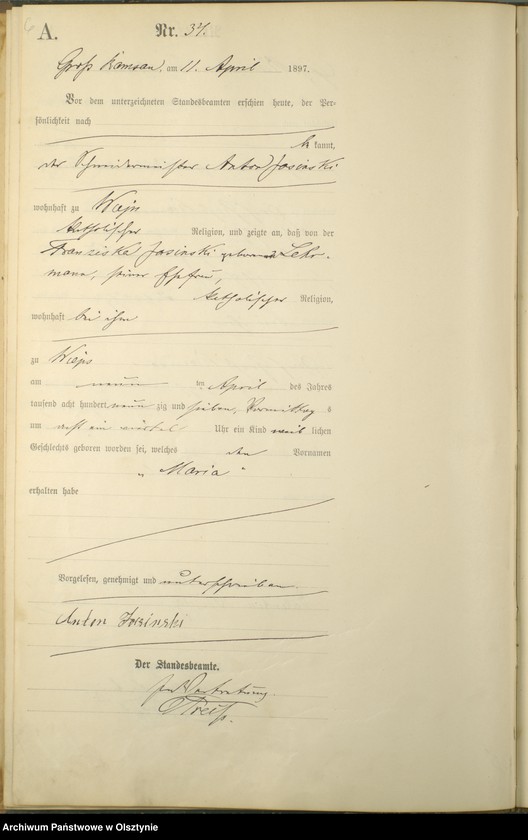 A. Nr. 37.
Groß Ramsau, am 11. April 1897.
Vor dem unterzeichneten Standesbeamten erschien heute, der Per-
sönlichkeit nach
kannt,
der Schneidermeister Anton Jasinski
wohnhaft zu Wieps
katholischer Religion, und zeigte an, daß von der
Franziska Jasinski geborenen Lehr-
mann, seiner Ehefrau,
katholischer Religion,
wohnhaft bei ihm
zu Wieps
am neunten April des Jahres
tausend acht hundert neun zig und sieben, Vormittag s
um ein viertel Uhr ein Kind weib lichen
Geschlechts geboren worden sei, welches den Vornamen
„ Maria “
erhalten habe
Vorgelesen, genehmigt und unterschrieben.
Anton Jasinski
Der Standesbeamte.
In Vertretung.
Archiwum Państwowe w Olsztynie